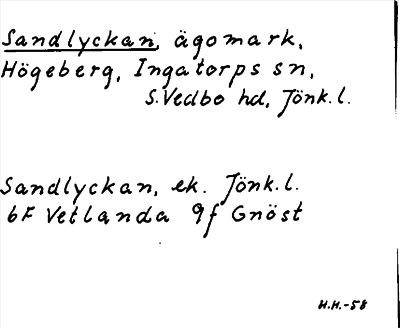 Sandlyckan, ägomark,
Högeberg, Ingatorps sn,
S. Vedbo hd, Jönk. l.
Sandlyckan, ek. Jönk. l.
6F Vetlanda 9f Gnöst
H.H.-58